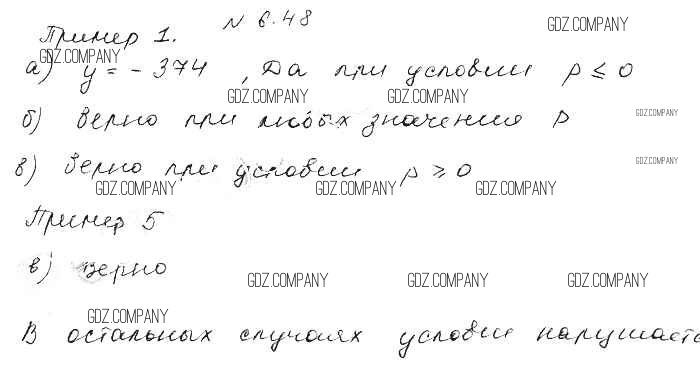 N 6.48
Пример 1.
а) y = - 374 , Да при условии p ≤ 0
б) Верно при любых значения p
в) Верно при условии p ≥ 0
Пример 5
в) верно
В остальных случаях условие нарушаетс
GDZ.COMPANY
GDZ.COMPANY
GDZ.COMPANY GDZ.COMPANY
GDZ.COMPANY
GDZ.COMPANY
GDZ.COMPANY GDZ.COMPANY GDZ.COMPANY
GDZ.COMPANY GDZ.COMPANY GDZ.COMPANY
GDZ.COMPANY